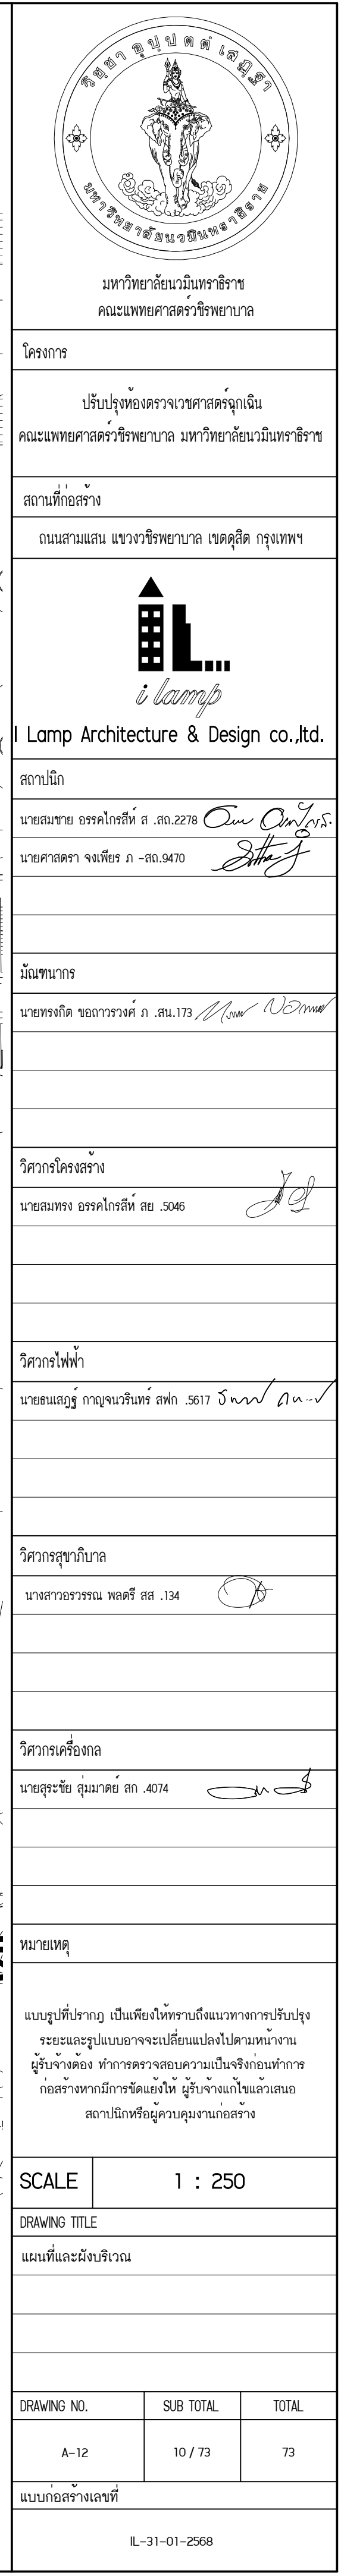 วิชฺชา อุปฺปตตํ เสฏฺฐา
มหาวิทยาลัยนวมินทราธิราช
มหาวิทยาลัยนวมินทราธิราช
คณะแพทยศาสตร์วชิรพยาบาล
โครงการ
ปรับปรุงห้องตรวจเวชศาสตร์ฉุกเฉิน
คณะแพทยศาสตร์วชิรพยาบาล มหาวิทยาลัยนวมินทราธิราช
สถานที่ก่อสร้าง
ถนนสามแสน แขวงวชิรพยาบาล เขตดุสิต กรุงเทพฯ
i lamp
I Lamp Architecture & Design co.,ltd.
สถาปนิก
นายสมชาย อรรคไกรสีห์ ส .สถ.2278
นายศาสตรา จงเพียร ภ -สถ.9470
มัณฑนากร
นายทรงกิต ขอถาวรวงศ์ ภ .สน.173
วิศวกรโครงสร้าง
นายสมทรง อรรคไกรสีห์ สย .5046
วิศวกรไฟฟ้า
นายธนเสฏฐ์ กาญจนวรินทร์ สฟก .5617
วิศวกรสุขาภิบาล
นางสาวอรวรรณ พลตรี สส .134
วิศวกรเครื่องกล
นายสุระชัย สุ่มมาตย์ สก .4074
หมายเหตุ
แบบรูปที่ปรากฎ เป็นเพียงให้ทราบถึงแนวทางการปรับปรุง
ระยะและรูปแบบอาจจะเปลี่ยนแปลงไปตามหน้างาน
ผู้รับจ้างต้อง ทำการตรวจสอบความเป็นจริงก่อนทำการ
ก่อสร้างหากมีการขัดแย้งให้ ผู้รับจ้างแก้ไขแล้วเสนอ
สถาปนิกหรือผู้ควบคุมงานก่อสร้าง
SCALE 1 : 250
DRAWING TITLE
แผนที่และผังบริเวณ
DRAWING NO. SUB TOTAL TOTAL
A-12 10 / 73 73
แบบก่อสร้างเลขที่
IL-31-01-2568